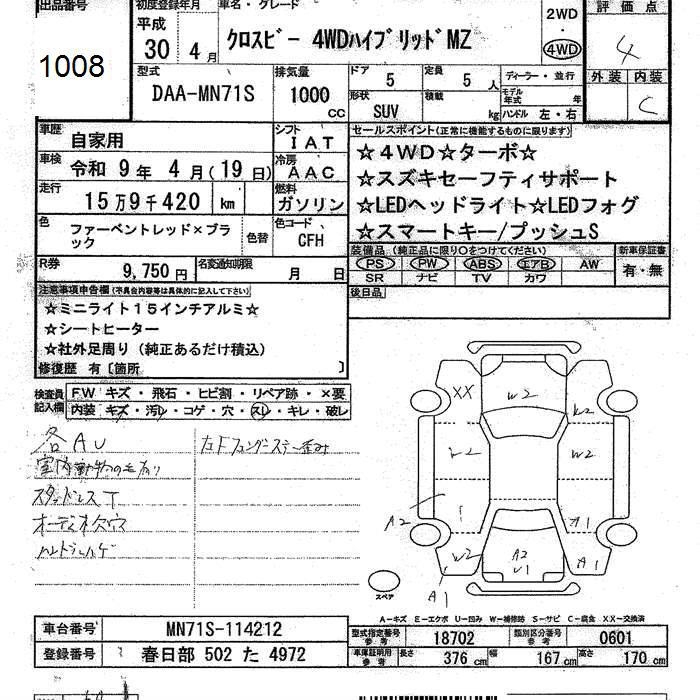 出品番号
1008
初度登録年月
平成
30年 4月
車名・グレード
クロスビー 4WDハイブリッドMZ
2WD
・
4WD
評価点
4
外装 内装
C
型式
DAA-MN71S
排気量
1000
CC
ドア 5
定員 5 人
形状
SUV
積載
kg
ディーラー・並行
モデル年式 年
ハンドル 左・右
車歴
自家用
シフト
IAT
車検
令和 9年 4月(19日)
冷房
AAC
走行
15万9千420 km
燃料
ガソリン
色
ファーベントレッド×ブラック
色替
色コード
CFH
R券
9,750円
名変通知期限
月 日
セールスポイント(正常に機能するものに限ります)
☆4WD☆ターボ☆
☆スズキセーフティサポート
☆LEDヘッドライト☆LEDフォグ
☆スマートキー/プッシュS
装備品(純正品に限り○をつけてください)
PS PW ABS エアB AW
SR ナビ TV カワ
新車保証書
有・無
後日品
注意事項申告欄(不具合内容等は具体的に記入して下さい)
☆ミニライト15インチアルミ☆
☆シートヒーター
☆社外足周り(純正あるだけ積込)
修復歴 有〔箇所 〕
検査員記入欄
FW キズ・飛石・ヒビ割・リペア跡・×要
内装 キズ・汚レ・コゲ・穴・スレ・キレ・破レ
各AU
室内動物の毛有り
スタッドレスT
オーディオスペース
ハンドルハゲ
XX
W2
W2
W2
W2
A2
A1
W2
A1
A2
U1
スペア
A-キズ E-エクボ U-凹み W-補修跡 S-サビ C-腐食 XX-交換済
車台番号
MN71S-114212
登録番号
春日部 502 た 4972
型式指定番号
参考
18702
類別区分番号
参考
0601
車庫証明用
参考
長さ 376cm
幅 167cm
高さ 170cm